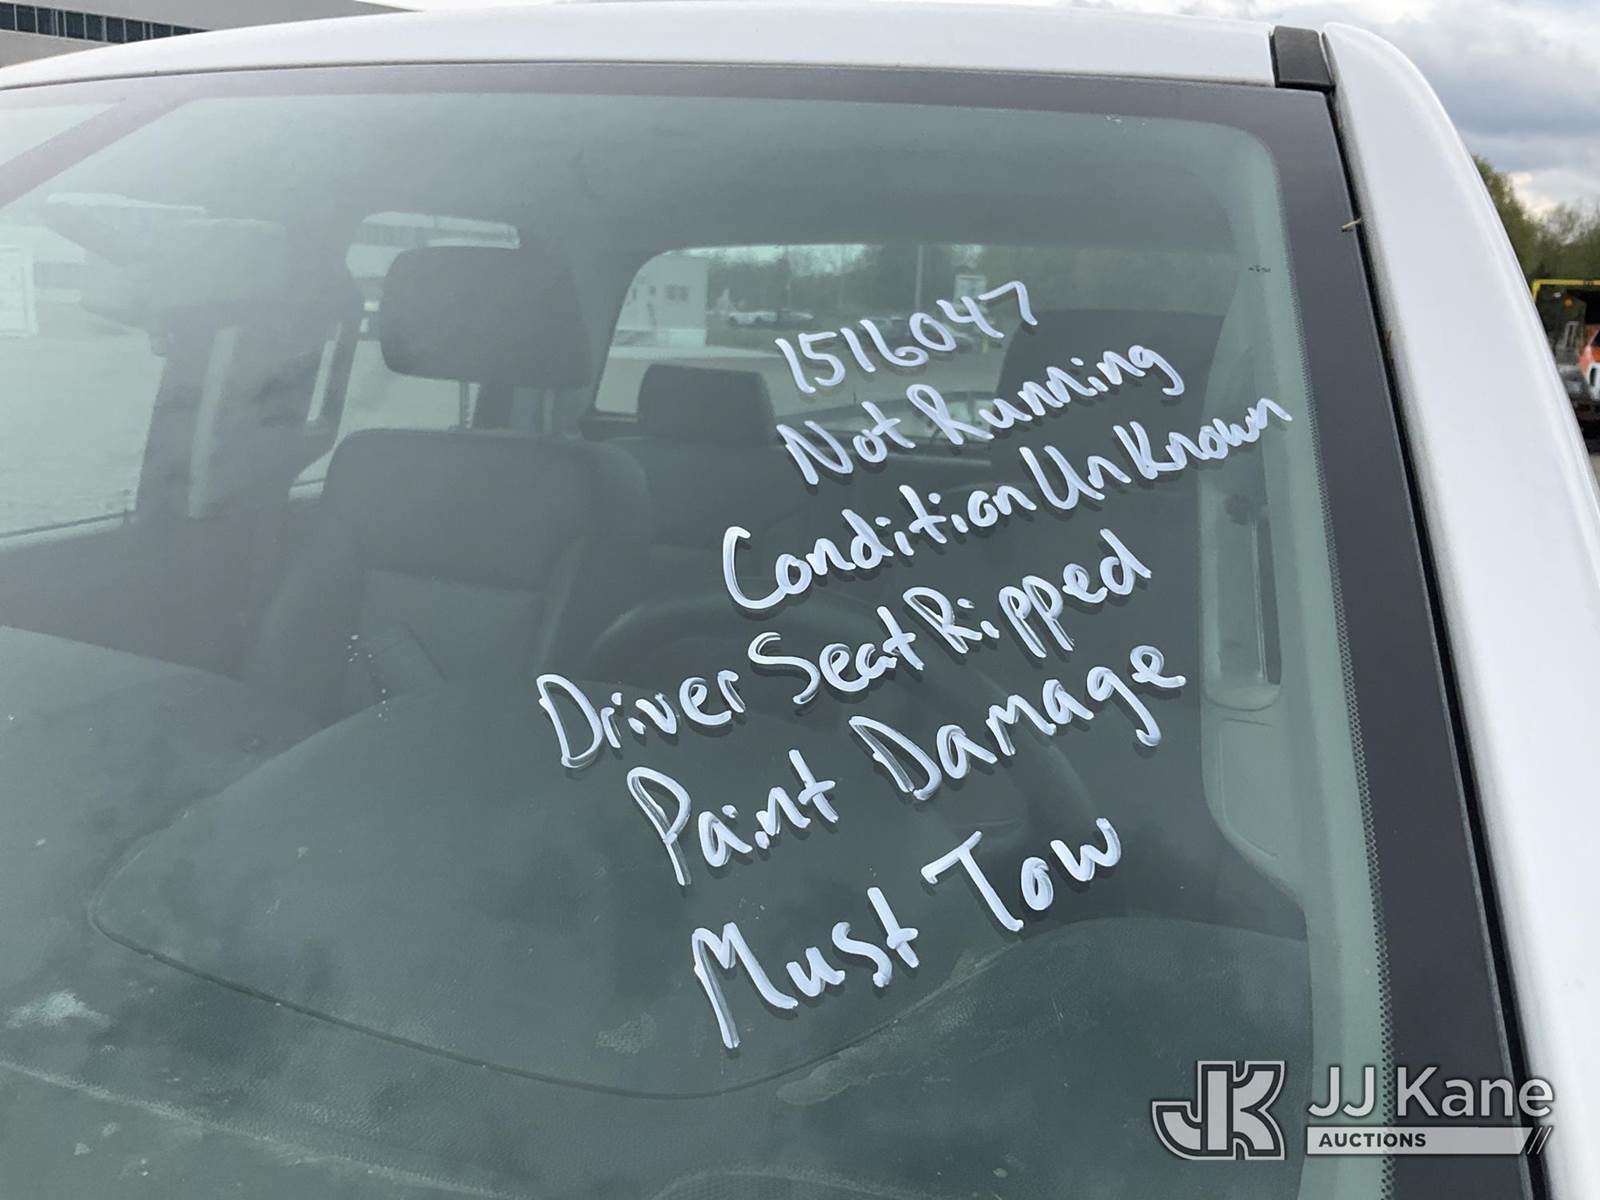 1516047
Not Running
Condition UnKnown
Driver Seat Ripped
Paint Damage
Must Tow
JK JJ Kane
AUCTIONS